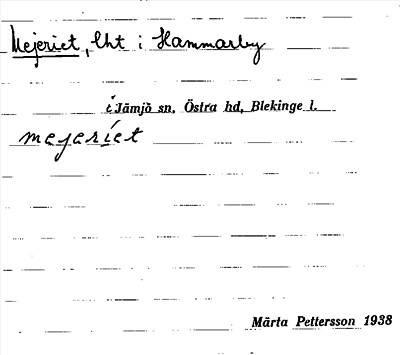 Mejeriet, lht i Hammarby
i Jämjö sn, Östra hd, Blekinge l.
mejeriet
Märta Pettersson 1938